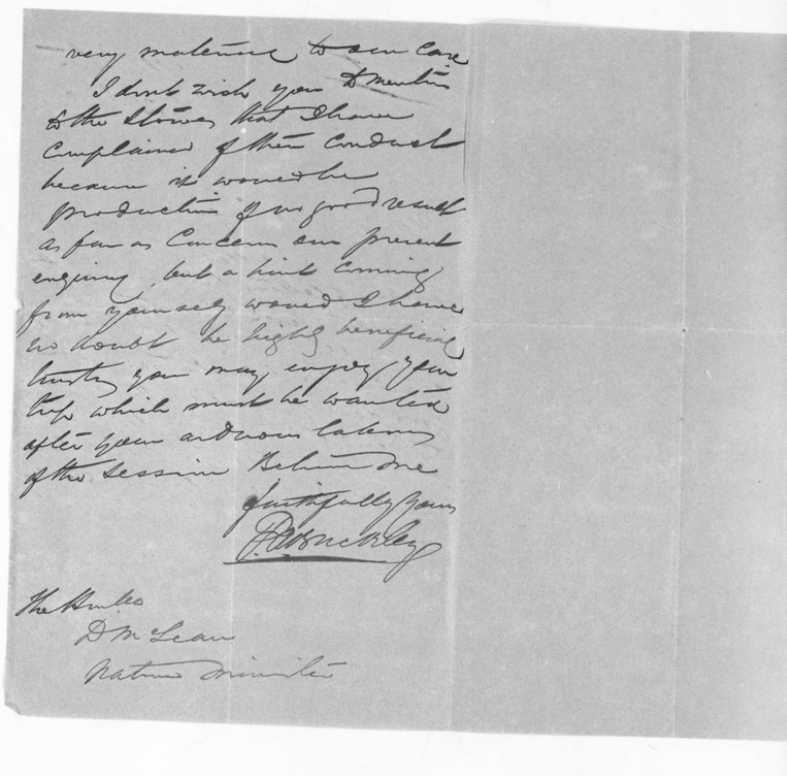 very material to our case
I dont wish you to mention
to the that I have
complained of their conduct
because it would be
production of no good result
as far as Concern our present
enquiry, but a hint coming
from yourself would I have
no doubt be highly beneficial
trusting you may enjoy your
trip which must be wanted
after your arduous labours
of the Session Believe me
faithfully yours
Buckley
The Honble
D McLean
Native Minister